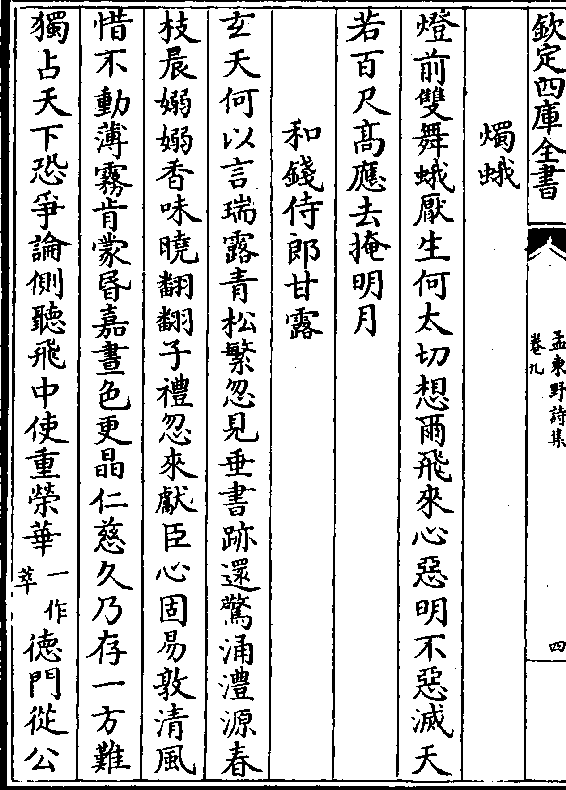 欽定四庫全書
孟東野詩集
卷九
四
燭蛾
燈前雙舞蛾厭生何太切想爾飛來心惡明不惡滅天
若百尺髙應去掩明月
和錢侍郎甘露
玄天何以言瑞露青松繁忽見垂書跡還驚涌澧源春
枝晨嫋嫋香味曉翻翻子禮忽來獻臣心固易敦清風
惜不動薄霧肯蒙昏嘉晝色更晶仁慈久乃存一方難
獨占天下恐爭論側聽飛中使重榮華一作萃徳門從公